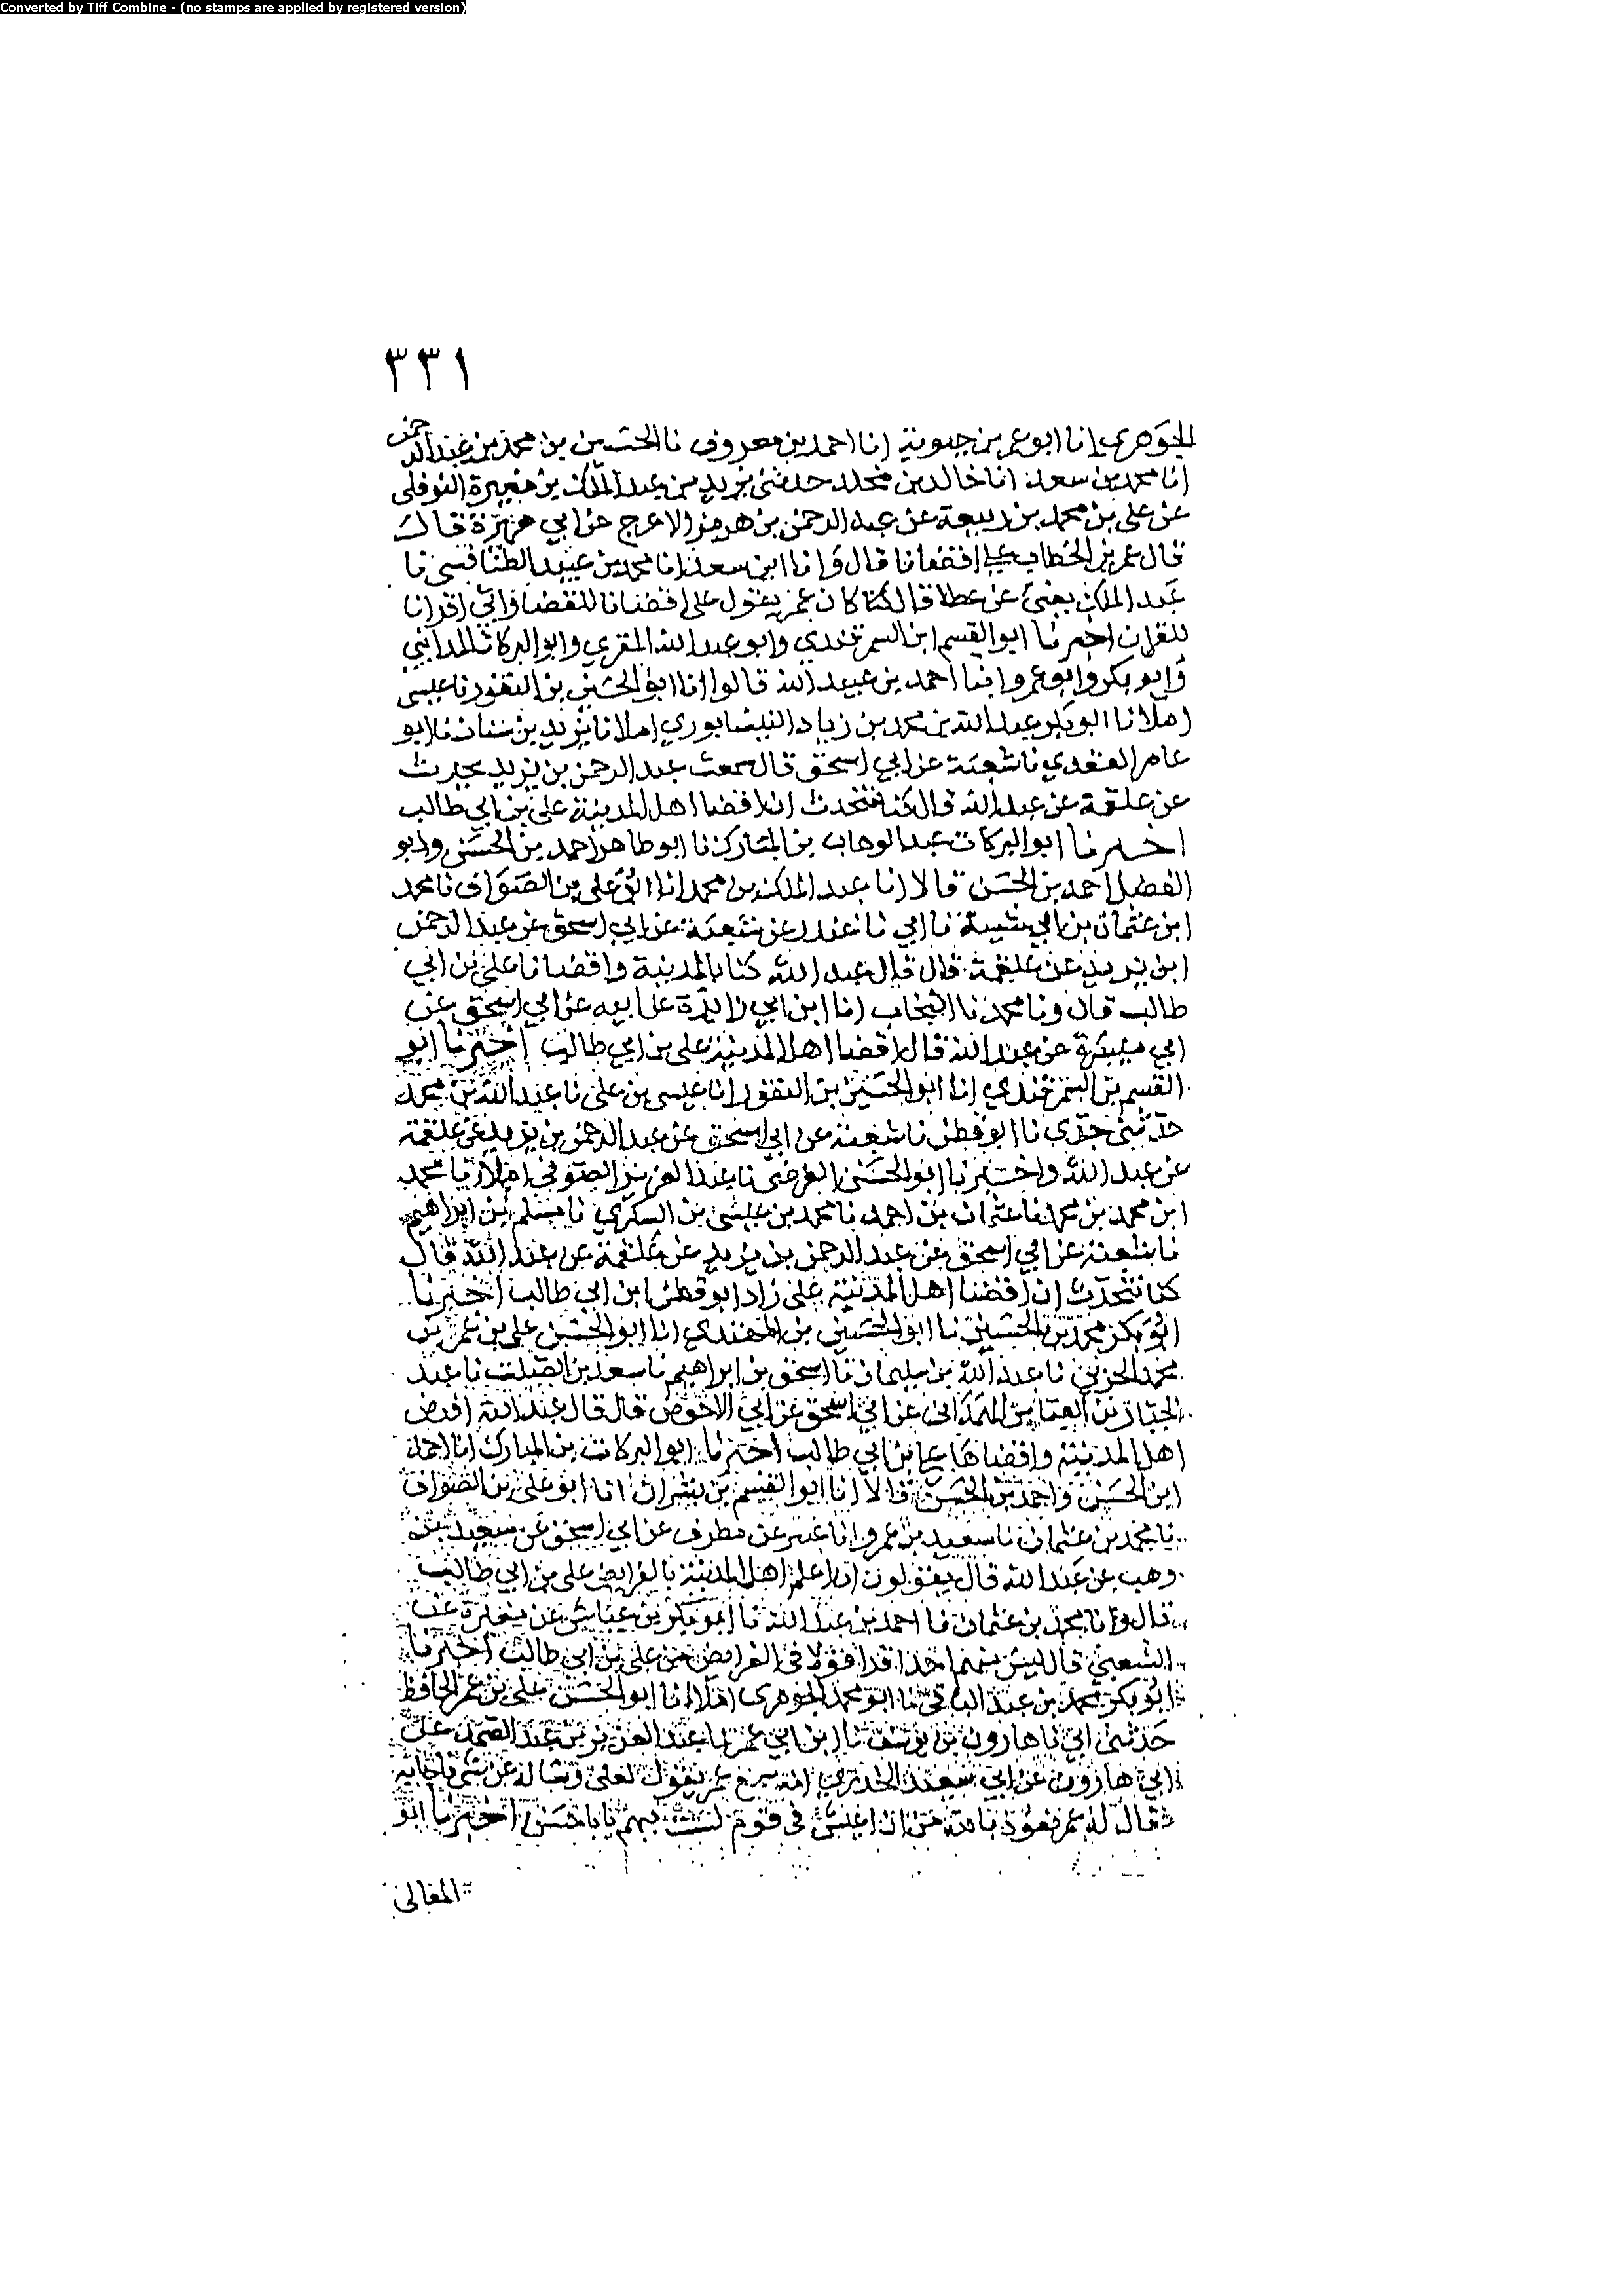 Converted by Tiff Combine - (no stamps are applied by registered version)
٣٣١
الجوهري انا ابو عمر بن حيوية انا احمد بن معروف نا الحسين بن محمد بن عبد الرحمن
انا محمد بن سعد انا خالد بن مخلد حدثني يزيد بن عبد الملك بن مغيرة النوفلي
عن علي بن محمد بن ربيعة عن عبد الرحمن بن هرمز الاعرج عن ابي هريرة قال
قال عمر بن الخطاب علي اقضانا قال وانا ابن سعد انا محمد بن عبيد الطنافسي نا
عبد الملك يعني عن عطا قال كان عمر يقول علي اقضانا للقضا وابي اقرانا
للقران اخبرنا ابو القسم ابن السمرقندي وابو عبد الله المقري وابو البركات المدايني
وابو بكر وابو عمرو ابنا احمد بن عبيد الله قالوا انا ابو الحسين بن النقور نا عيسى
املانا ابو بكر عبد الله بن محمد بن زياد النيسابوري املانا يزيد بن سنان نا ابو
عامر العقدي نا شعبة عن ابي اسحق قال سمعت عبد الرحمن بن يزيد يحدث
عن علقمة عن عبد الله قال كنا نتحدث ان اقضا اهل المدينة علي بن ابي طالب
اخبرنا ابو البركات عبد الوهاب بن المبارك نا ابو طاهر احمد بن الحسن وابو
الفضل احمد بن الحسن قالا انا عبد الملك بن محمد انا ابو علي بن الصواف نا محمد
ابن عثمان بن ابي شيبة نا ابي نا غندر عن شعبة عن ابي اسحق عن عبد الرحمن
ابن يزيد عن علقمة قال قال عبد الله كنا بالمدينة واقضانا علي بن ابي
طالب قال ونا محمد نا المنجاب انا ابن ابي زايدة عن ابيه عن ابي اسحق عن
ابي ميسرة عن عبد الله قال اقضا اهل المدينة علي بن ابي طالب اخبرنا ابو
القسم بن السمرقندي انا ابو الحسين بن النقور انا عيسى بن علي نا عبد الله بن محمد
حدثني جدي نا ابو قطن نا شعبة عن ابي اسحق عن عبد الرحمن بن يزيد عن علقمة
عن عبد الله واخبرنا ابو الحسن الفرضي نا عبد العزيز الصوفي املا نا محمد
ابن محمد بن محمد نا عثمان بن احمد نا محمد بن عيسى بن السكري نا مسلم بن ابراهيم
نا شعبة عن ابي اسحق عن عبد الرحمن بن يزيد عن علقمة عن عبد الله قال
كنا نتحدث ان اقضا اهل المدينة علي زاد ابو قطن ابن ابي طالب اخبرنا
ابو بكر محمد بن الحسين نا ابو الحسين بن المهتدي انا ابو الحسن علي بن عمر بن
محمد الحربي نا عبد الله بن سليمان نا اسحق بن ابراهيم نا سعد بن الصلت نا عبد
الجبار بن العباس الهمداني عن ابي اسحق عن ابي الاحوص قال قال عبد الله افرض
اهل المدينة واقضاها علي بن ابي طالب اخبرنا ابو البركات بن المبارك انا احمد
ابن الحسن واحمد بن الحسن قالا انا ابو القسم بن بشران انا ابو علي بن الصواف
نا محمد بن عثمان نا سعيد بن عمرو انا عبثر عن مطرف عن ابي اسحق عن سعيد بن
وهب عن عبد الله قال يقولون ان اعلم اهل المدينة بالفرايض علي بن ابي طالب
قال وانا محمد بن عثمان نا احمد بن عبد الله نا ابو بكر بن عياش عن مغيرة عن
الشعبي قال ليس منهم احد اقوا قولا في الفرايض من علي بن ابي طالب اخبرنا
ابو بكر محمد بن عبد الباقي نا ابو محمد الجوهري املا انا ابو الحسن علي بن عمر الحافظ
حدثني ابي نا هارون بن يوسف نا ابن ابي عمر نا عبد العزيز بن عبد الصمد عن
ابي هارون عن ابي سعيد الخدري انه سمع عمر يقول لعلي وساله عن شي فاجابه
فقال له عمر نعوذ بالله من ان اعيش في قوم لست فيهم يابا حسن اخبرنا ابو